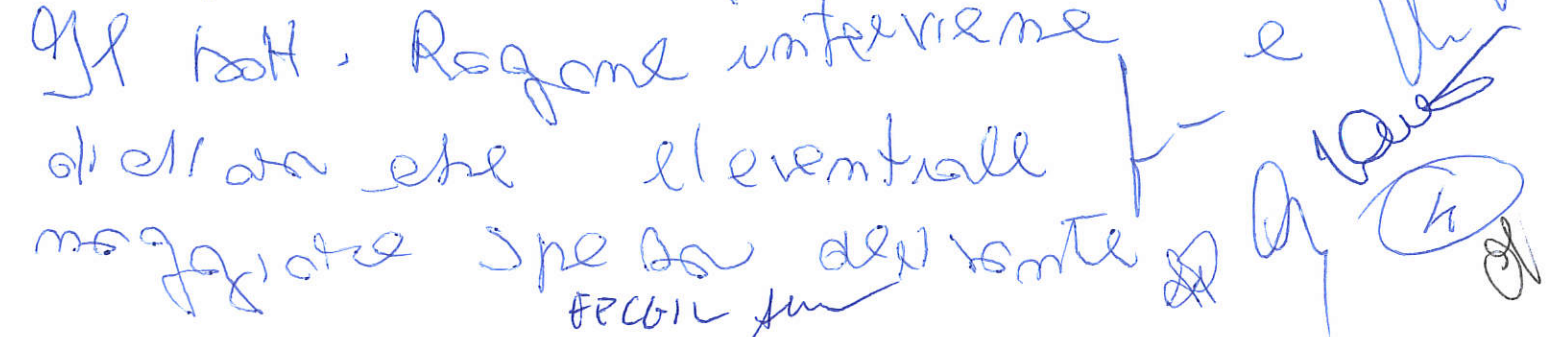 Il Dott. Ragone interviene e
dichiara che l'eventuale
maggiore spesa derivante
FPCGIL
4